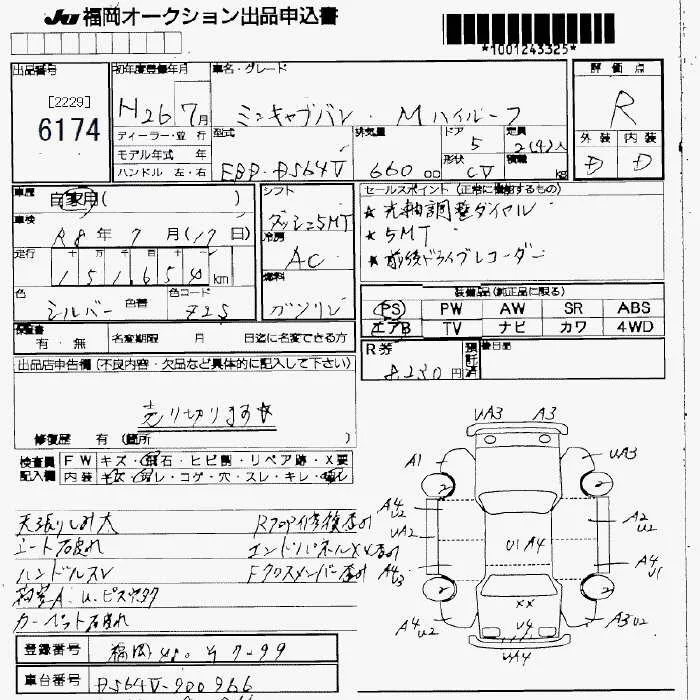 JU 福岡オークション出品申込書
*1001243325*
出品番号
[2229]
6174
初年度登録年月
H26 7月
車名・グレード
ミニキャブバン・Mハイルーフ
評価点
R
ディーラー・並行
モデル年式 年
ハンドル 左・右
型式
EBD-DS64V
排気量
660 cc
ドア
5
形状
CV
定員
2(4)人
積載
kg
外装 内装
D D
車歴
自家用( )
車検
R8年7月(17日)
走行
十万千百十一
151,654 km
色
シルバー 色替
色コード
Z2S
シフト
ダッシュ5MT
冷房
AC
燃料
ガソリン
セールスポイント (正常に機能するもの)
★光軸調整ダイヤル
★5MT
★前後ドライブレコーダー
装備品(純正品に限る)
PS PW AW SR ABS
エアB TV ナビ カワ 4WD
保証書
有・無
名変期限 月 日迄に名変できる方
R券
8,230円
預託済
後日品
出品店申告欄(不良内容・欠品など具体的に記入して下さい)
売り切ります☆
修復歴 有(箇所 )
検査員記入欄
FW キズ・飛石・ヒビ割・リペア跡・X要
内装 キズ・汚レ・コゲ・穴・スレ・キレ・
天張りしみ大
シート汚れ
ハンドルスレ
カーペット汚れ
エンドパネルXX
Fクロスメンバー
UA3 A3
A1 UA3
A4
U2
UA2
A4
U3
A4
U2
A2
U2
A4
U1
A3 U2
U1 A4
XX
U4
UA4
2 2
2 2
登録番号
福岡480 そ 7-99
車台番号
DS64V-900966